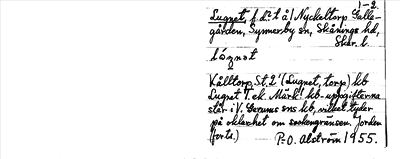 1-2.
Lugnet, f. d. t å/ Nyckeltorp Galle-
gården, Synnerby sn, Skånings hd,
Skar. l.
lóŋnət
Kålltorp St. 2' (Lugnet, torp) kb
Lugnet T. ek. Märk! kb-uppgifterna
står i V. Gerums sns kb, vilket tyder
på oklarhet om sockengränsen. Jorden
(forts.) P-O. Alström 1955.